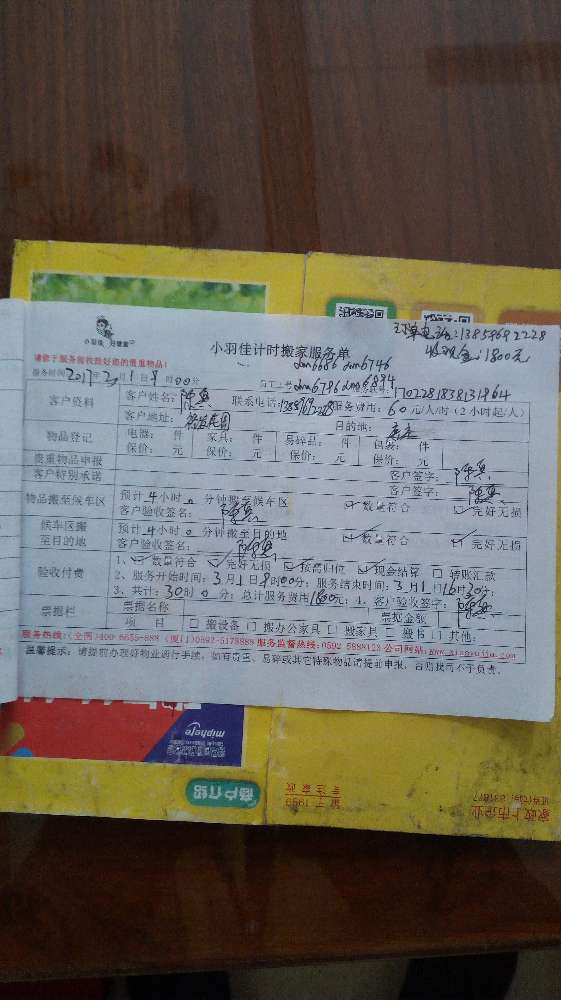 小羽佳 好管家
小羽佳计时搬家服务单
订单电话:13859692228
收现金:1800元
请亲手服务前收拾好您的贵重物品!
服务时间2017年3月1日8时00分
dnm6686 dnm6746
员工工号dnm6786 dnm6884
1702281838131864
客户资料
客户姓名:
联系电话:
服务费用:60元/人/时(2小时起/人)
客户地址:
目的地:
物品登记
电器: 件 家具: 件 易碎品: 件 包装: 件
保价: 元 保价: 元 保价: 元 保价: 元
贵重物品申报
客户签字:
客户特别承诺
客户签字:
物品搬至候车区
预计4小时0分钟搬至候车区
客户验收签名:
数量符合 完好无损
候车区搬
至目的地
预计4小时0分钟搬至目的地
客户验收签名:
数量符合 完好无损
验收付费
1、数量符合 完好无损 按需归位 现金结算 转账汇款
2、服务开始时间:3月1日8时00分; 服务结束时间:3月1日16时30分;
3、共计:30时0分; 总计服务费用1800元; 4、客户验收签字:
票据栏
票据名称
票据金额
项 目 搬设备 搬办公家具 搬家具 搬书 其他:
服务热线:(全国)400-6655-888 (厦门)0592-5178888 服务监督热线:0592-5888123 公司网站:www.xiaoyujia.com
温馨提示:请提前办理好物业进行手续, 如有贵重、易碎或其它特殊物品请提前申报, 否则我司不予负责。
miphele
商户介绍
家政上市企业
证券代码:831877